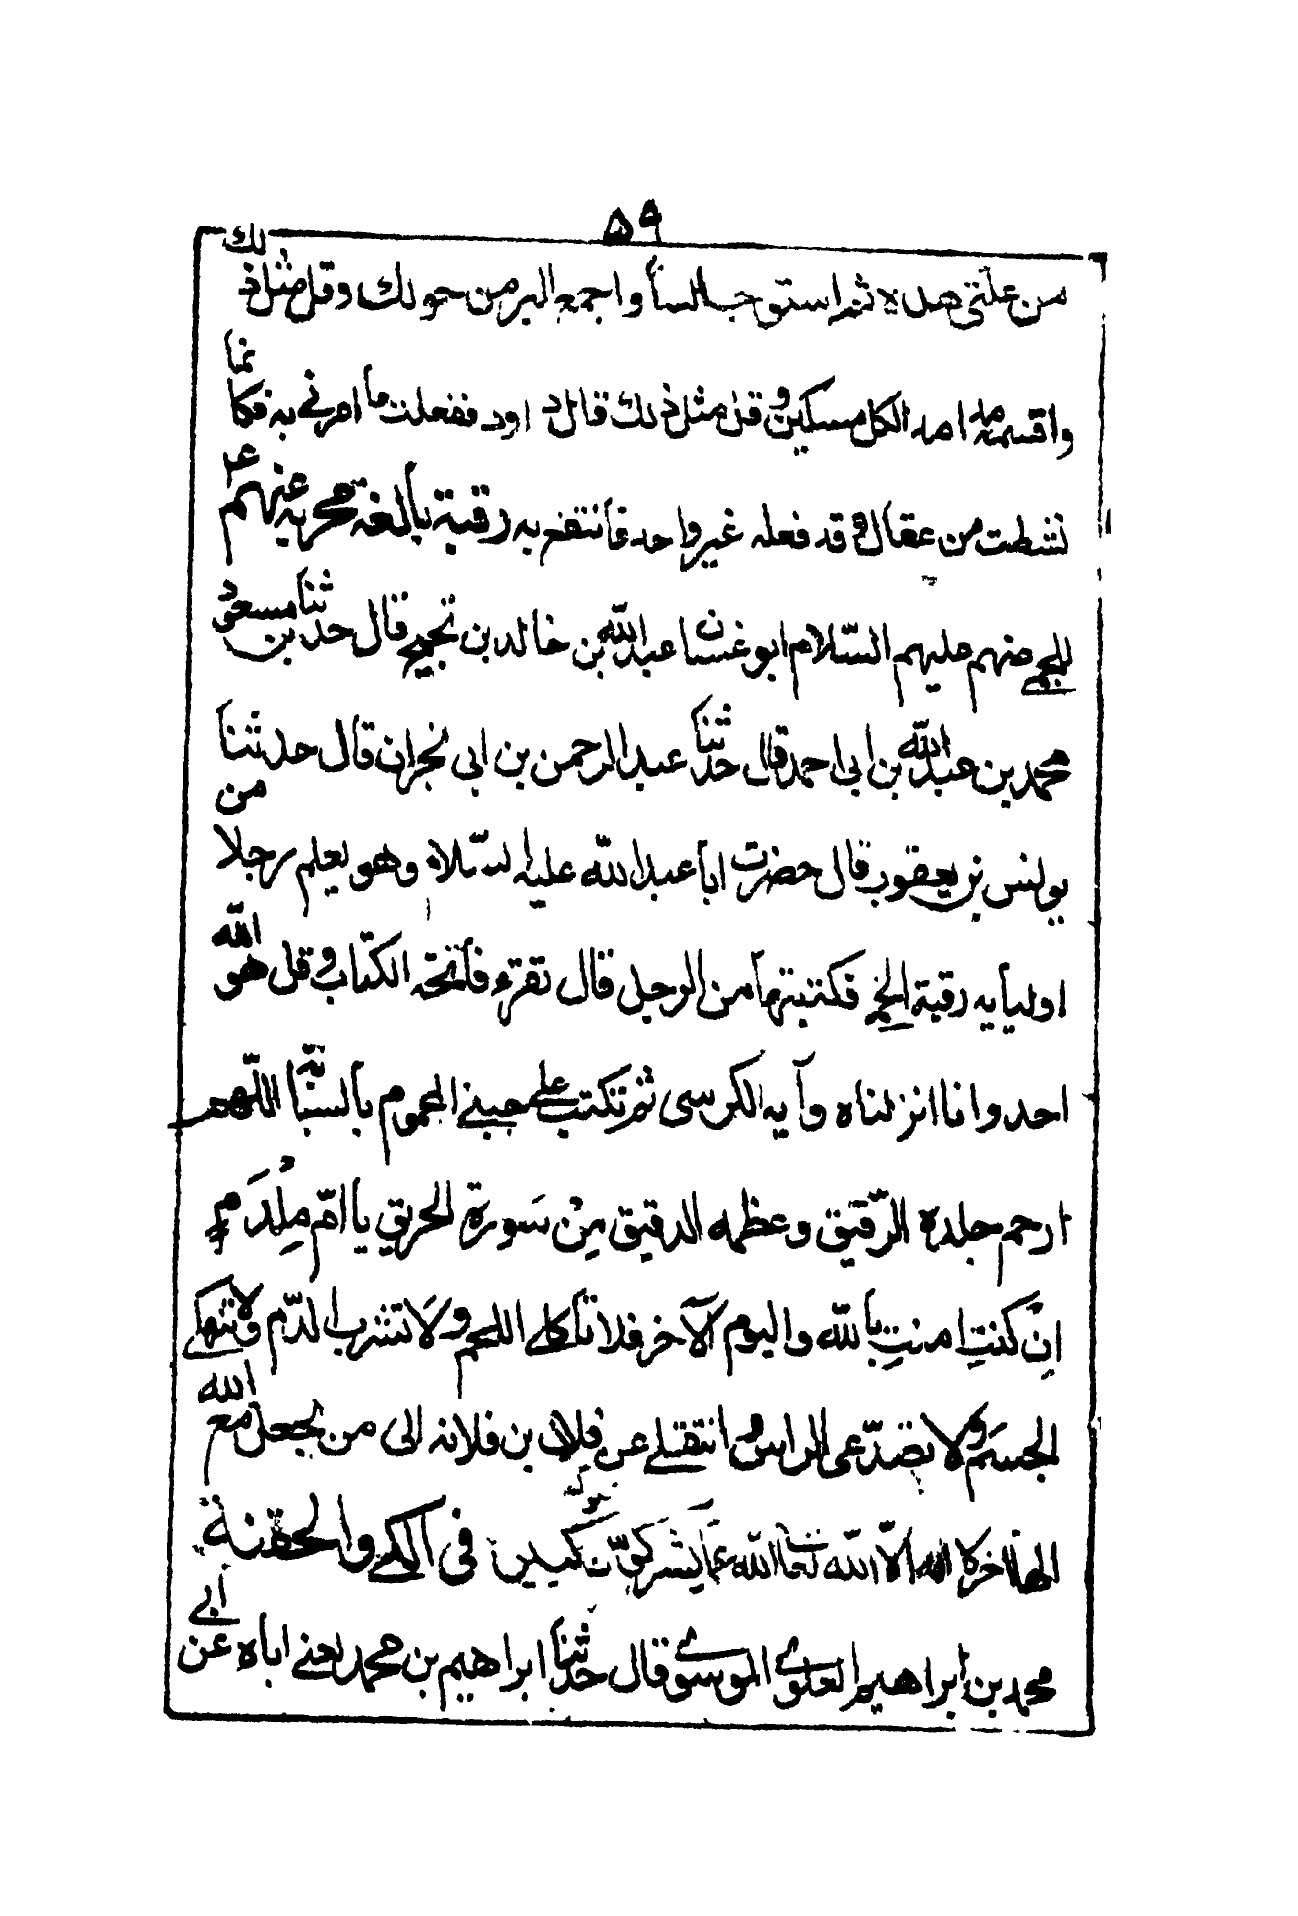 ٥٩
من علتي هذه ثم استو جالسا واجمع البر من حولك وقل مثل ذلك
واقسمه مد امد الكل مسكين وقل مثل ذلك قال داود ففعلت ما امرني به فكانما
نشطت من عقال وقد فعله غير واحد فانتفع به رقية بالغة مجربه عنهم
للحمى عنهم عليهم السلام ابو غسان عبد الله بن خالد بن نجيح قال حدثنا بن مسعود
محمد بن عبد الله بن ابي احمد قال حدثنا عبد الرحمن بن ابي نجران قال حدثنا
يونس بن يعقوب قال حضرت ابا عبد الله عليه السلام وهو يعلم رجلا من
اوليايه رقية الحمى فكتبتها من الرجل قال تقرء فاتحة الكتاب وقل هو الله
احد وانا انزلناه وآيه الكرسي ثم تكتب على جبيني المحموم بالسبابة اللهم
ارحم جلده الرقيق وعظمه الدقيق من سورة الحريق يا ام ملدم
ان كنت امنت بالله واليوم الآخر فلا تأكلي اللحم ولا تشرب الدم ولا تنهكي
الجسم ولا تصدعي الراس وانتقلي عن فلان بن فلانه الى من يجعل مع الله
الها اخر لا اله الا الله تعالى الله عما يشركون علوا كبيرا في الكي والحقنة
محمد بن ابراهيم العلوي الموسوي قال حدثنا ابراهيم بن محمد يعني اباه عن ابي